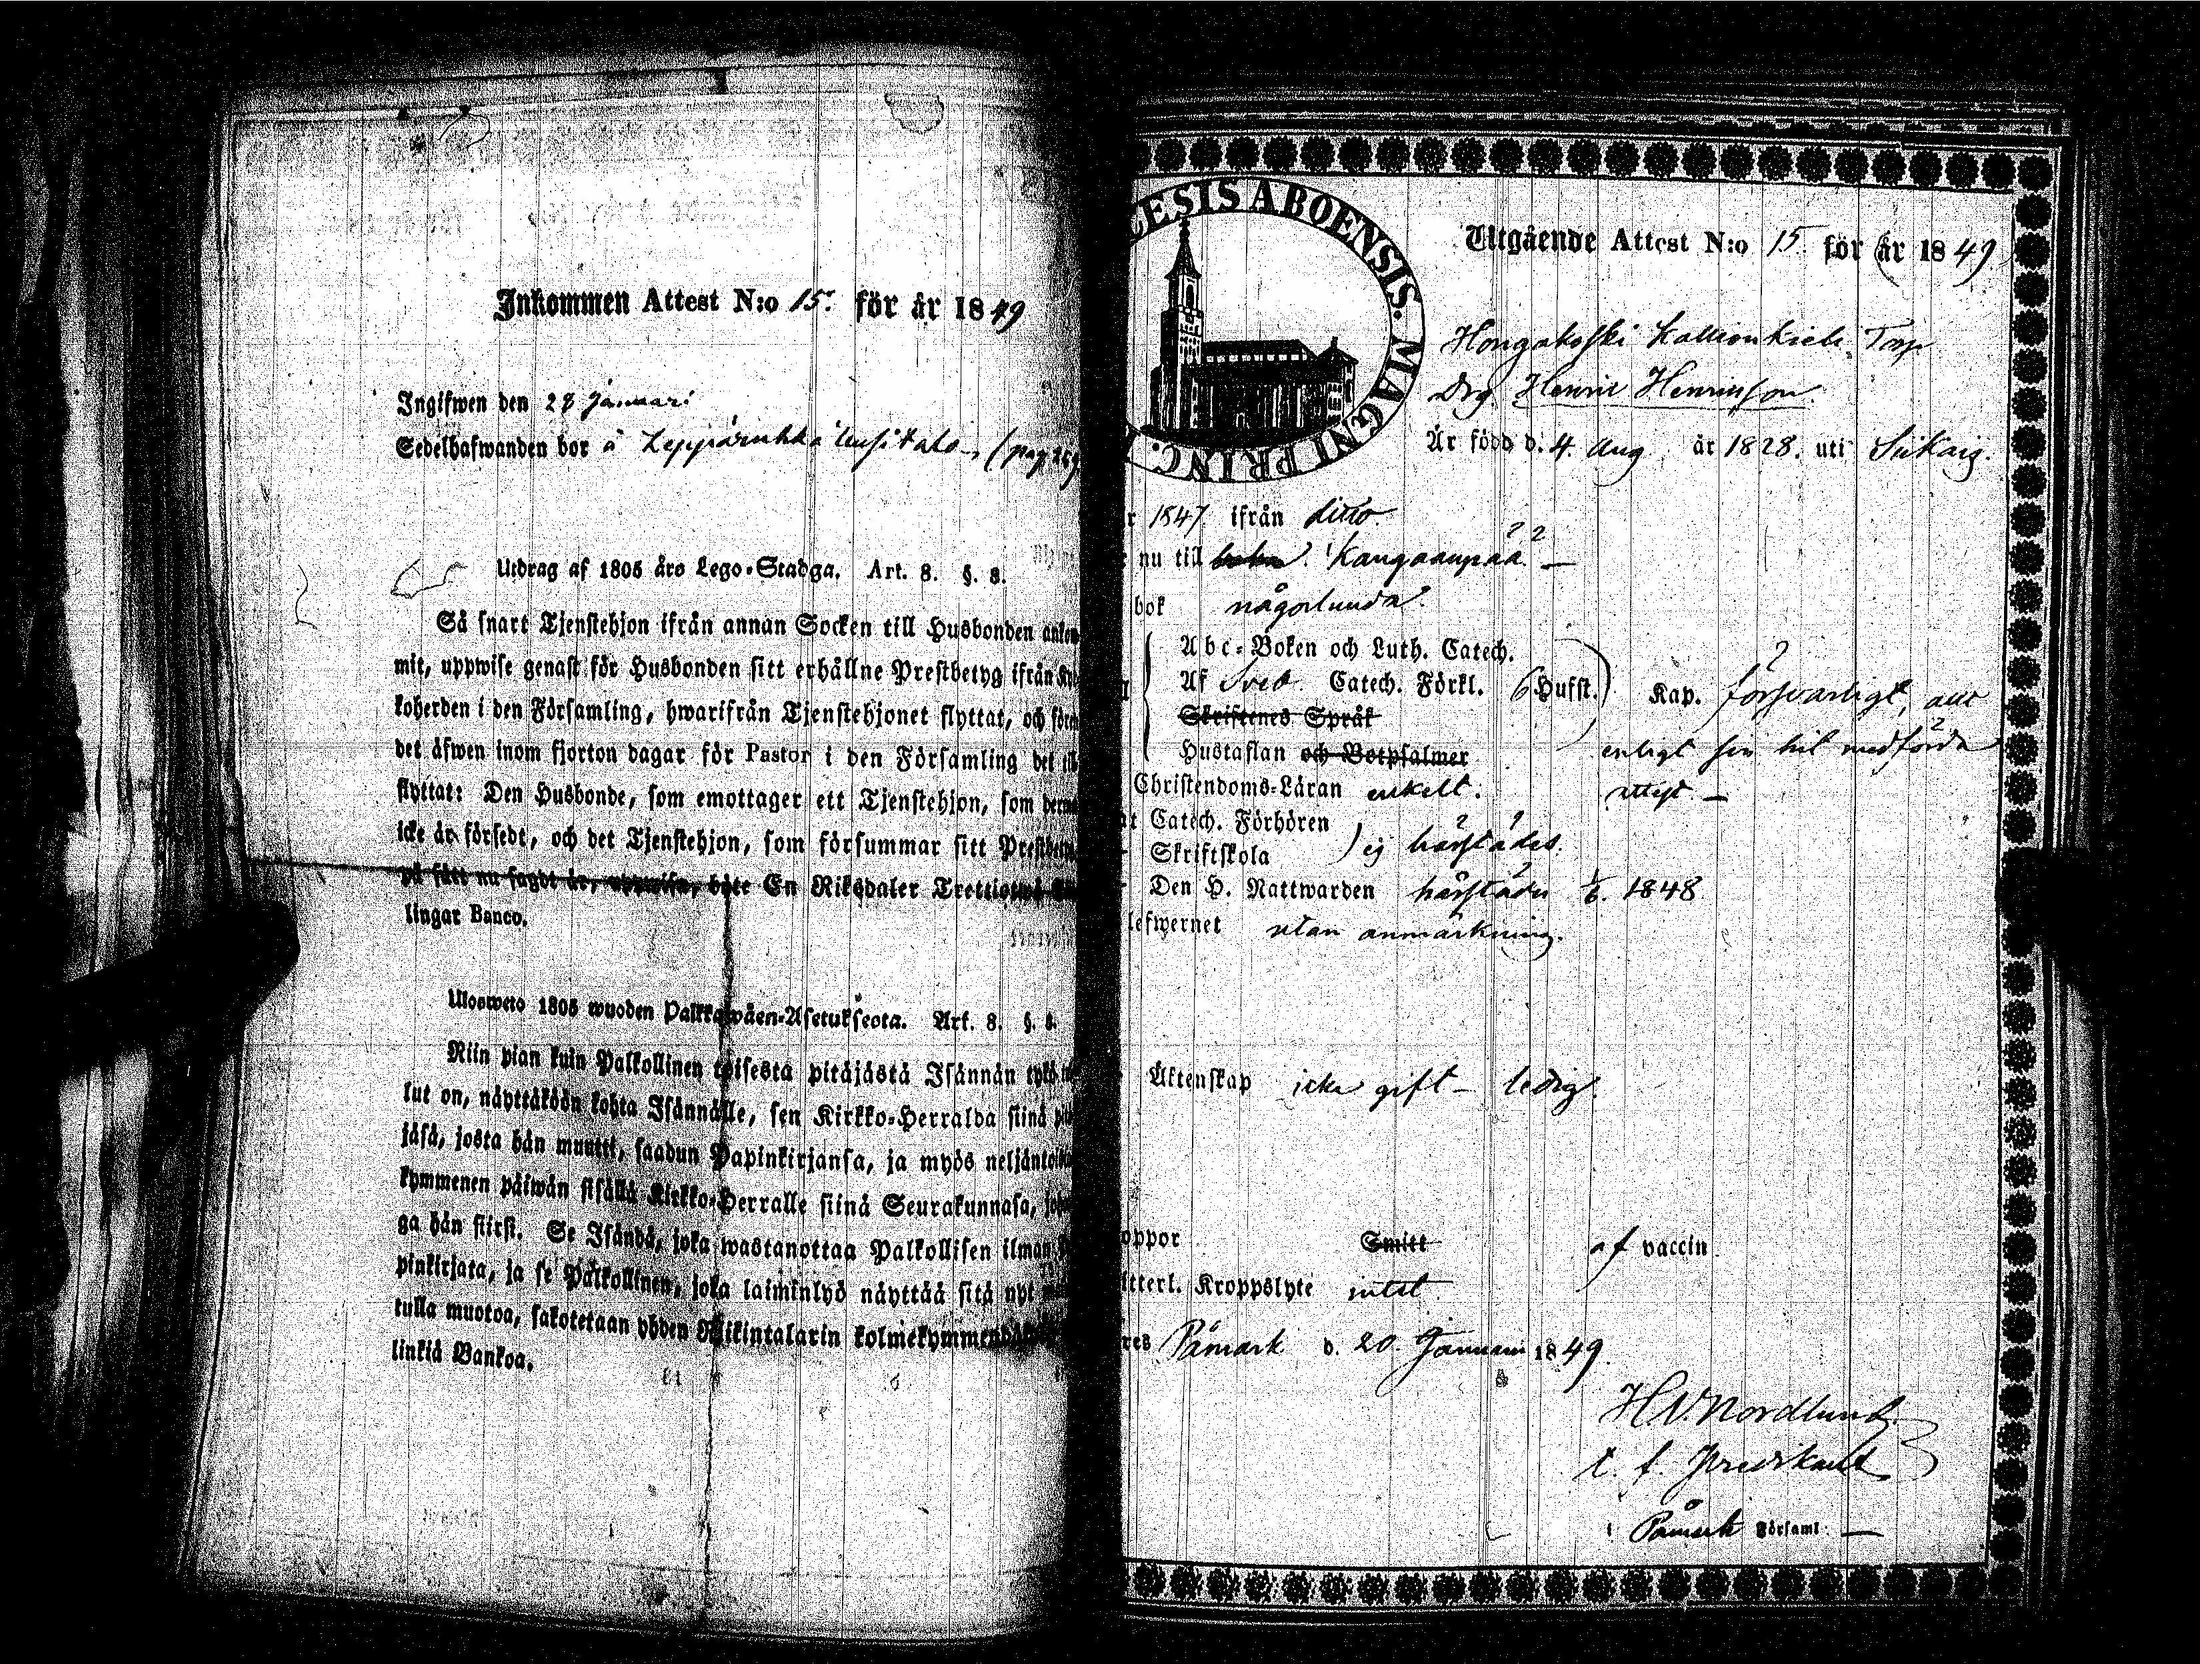 Inkommen Attest N:o 15. för år 1849
Ingifwen den 28 Januari
Sedelhafwanden bor å Leppäruhka Uusitalo (pag
Utdrag af 1805 års Lego-Stadga. Art. 8. §. 8.
Så snart Tjenstehjon ifrån annan Socken till Husbonden
mit, uppwise genast för Husbonden sitt erhållne Prestbetyg ifrån
koherden i den Församling, hwarifrån Tjenstehjonet flyttat, och
det äfwen inom fjorton dagar för Pastor i den Församling det
flyttat: Den Husbonde, som emottager ett Tjenstehjon, som
icke är försedt, och det Tjenstehjon, som försummar sitt
på sätt nu sagdt är, uppwisa, böte En Riksdaler
lingar Banco.
Ulosweto 1805 wuoden Palkkawäen-Asetuksesta. Art. 8. §. 8.
Niin pian kuin Palkollinen toisesta pitäjästä Isännän tykö
lut on, näyttäköön kohta Isännälle, sen Kirkko-Herralda siinä
jäsä, josta hän muutti, saadun Papinkirjansa, ja myös
kymmenen päiwän sisällä Kirkko-Herralle siinä Seurakunnasa,
ga hän siirsi. Se Isändä, joka wastanottaa Palkollisen ilman
pinkirjata, ja se Palkollinen, joka laiminlyö näyttää sitä nyt
tulla muotoa, sakotetaan yhden Riikintalarin
linkiä Bankoa.
ESIS ABOENSIS. MAGNI PRINC.
Utgående Attest N:o 15 för år 1849
Hongakoski Torp
Drg. Henric Henricsson.
Är född d. 4. Aug. år 1828. uti Siikaig.
1847 ifrån ditto.
nu till Kangaanpää. —
bok någorlunda.
Abc-Boken och Luth. Catech.
Af Sveb. Catech. Förkl. 6 Hufst. Kap. försvarligt, allt
Skriftenes Språk
Hustaflan och Botpsalmer enligt sin hit medförda
Christendoms-Läran enkelt. attest. —
Catech. Förhören
Skriftskola ej härstädes.
Den H. Nattwarden härstädes 1/6. 1848
lefwernet utan anmärkning.
Äktenskap icke gift – ledig.
oppor Smitt af vaccin
tterl. Kroppslyte intet.
res Påmark d. 20 Januari 1849.
H. V. Nordlund.
t. f. Predikant
i Påmark Församl. —